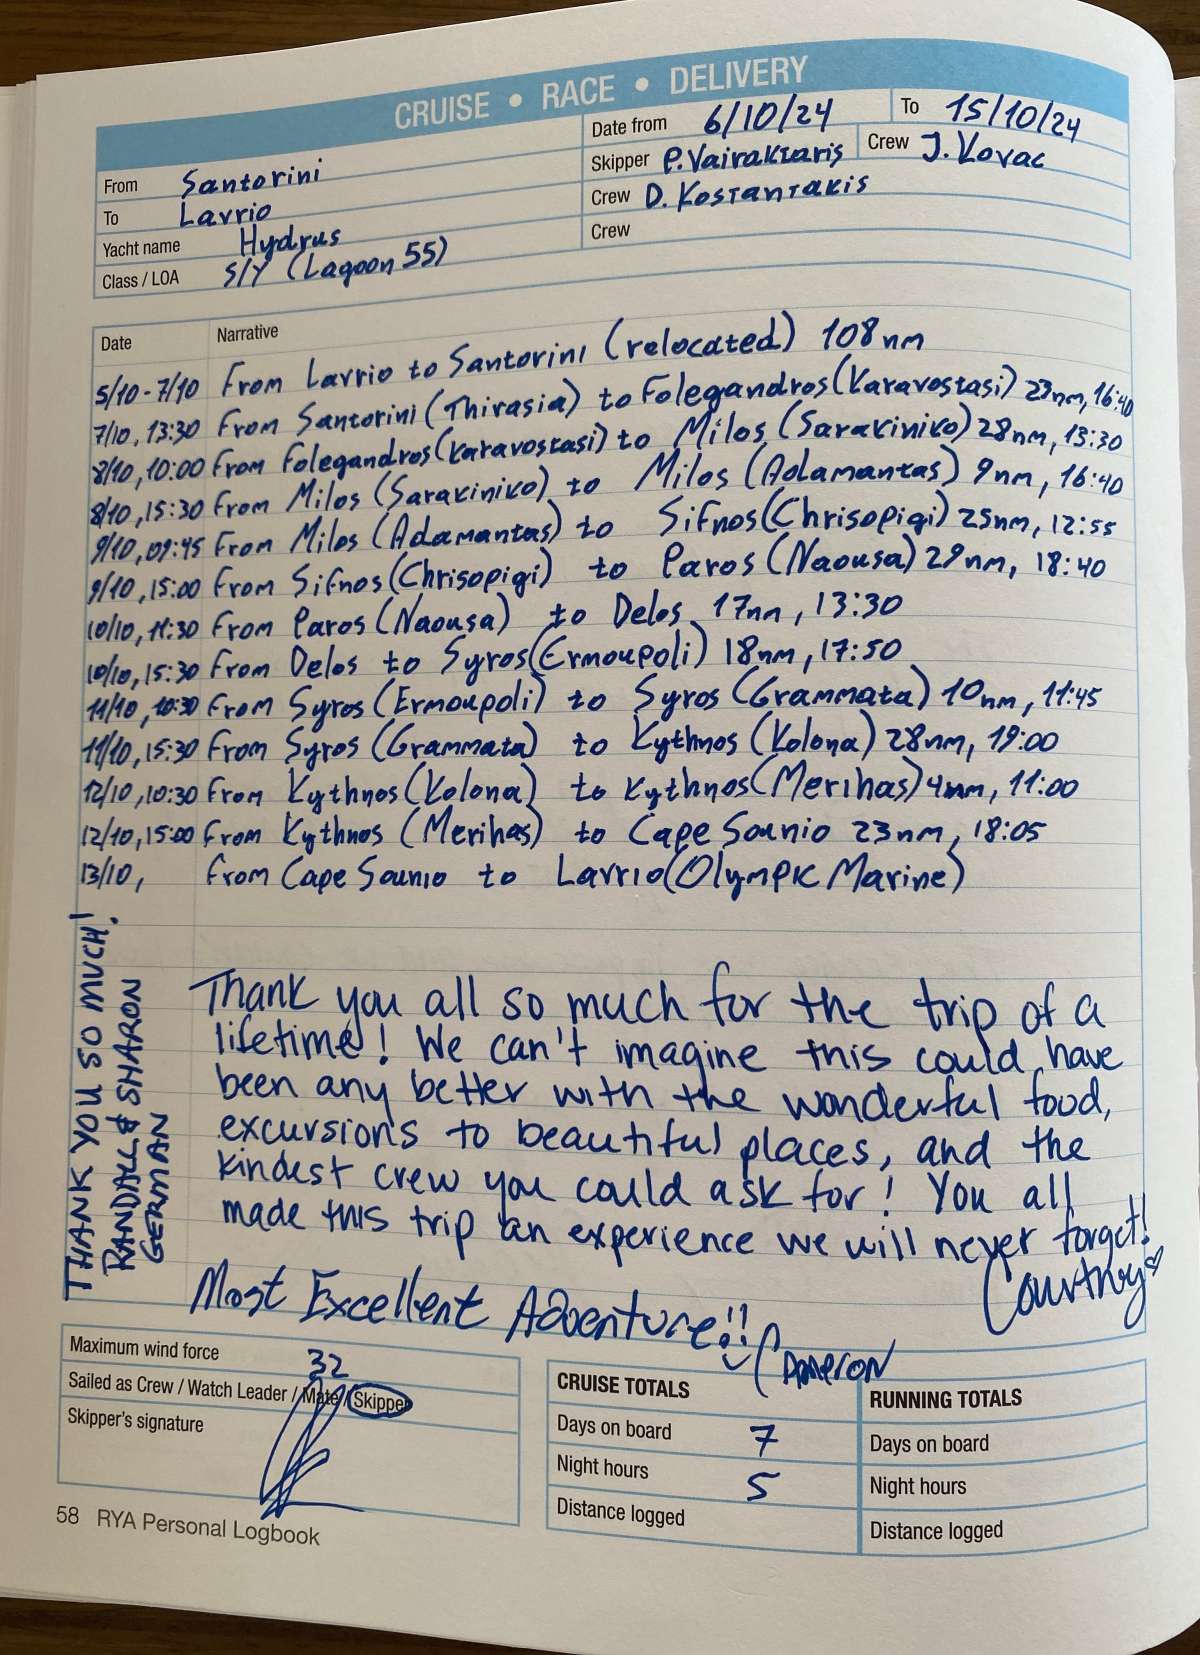 CRUISE • RACE • DELIVERY
From Santorini
To Lavrio
Yacht name Hydrus
Class / LOA S/Y (Lagoon 55)
Date from 6/10/24 To 15/10/24
Skipper P. Vairaktaris Crew J. Kovac
Crew D. Kostantakis
Crew
Date Narrative
5/10 - 7/10 From Lavrio to Santorini (relocated) 108nm
7/10, 13:30 From Santorini (Thirasia) to Folegandros (Karavostasi) 23nm, 16:40
8/10, 10:00 From Folegandros (Karavostasi) to Milos (Sarakiniko) 28nm, 13:30
8/10, 15:30 From Milos (Sarakiniko) to Milos (Adamantas) 9nm, 16:40
9/10, 09:45 From Milos (Adamantas) to Sifnos (Chrisopigi) 25nm, 12:55
9/10, 15:00 From Sifnos (Chrisopigi) to Paros (Naousa) 29nm, 18:40
10/10, 11:30 From Paros (Naousa) to Delos 17nm, 13:30
10/10, 15:30 From Delos to Syros (Ermoupoli) 18nm, 17:50
11/10, 10:30 From Syros (Ermoupoli) to Syros (Grammata) 10nm, 11:45
11/10, 15:30 From Syros (Grammata) to Kythnos (Kolona) 28nm, 19:00
12/10, 10:30 From Kythnos (Kolona) to Kythnos (Merihas) 4nm, 11:00
12/10, 15:00 From Kythnos (Merihas) to Cape Sounio 23nm, 18:05
13/10, From Cape Sounio to Lavrio (Olympic Marine)
THANK YOU SO MUCH!
RANDALL & SHARON
GERMAN
Thank you all so much for the trip of a
lifetime! We can't imagine this could have
been any better with the wonderful food,
excursions to beautiful places, and the
kindest crew you could ask for! You all
made this trip an experience we will never forget!
Courtney
Most Excellent Adventure!!
Cameron
Maximum wind force 32
Sailed as Crew / Watch Leader / Mate / Skipper
Skipper's signature
CRUISE TOTALS
Days on board 7
Night hours 5
Distance logged
RUNNING TOTALS
Days on board
Night hours
Distance logged
58 RYA Personal Logbook